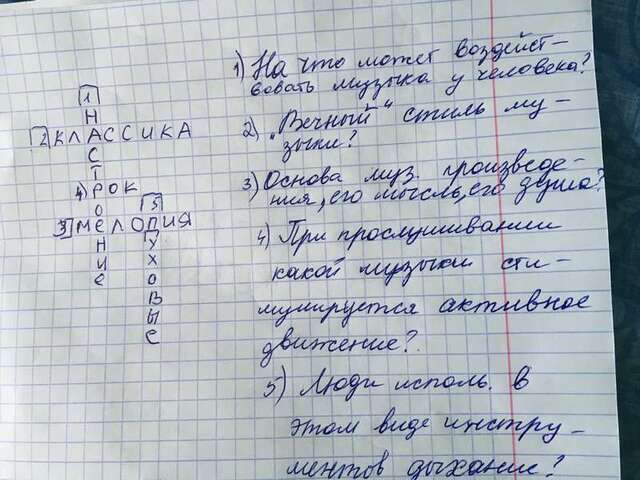 1
Н
2 КЛАССИКА
С
Т
4) РОК
О 5
3 МЕЛОДИЯ
Н У
И Х
Е О
В
Ы
Е
1) На что может воздейст-
вовать музыка у человека?
2) „Вечный" стиль му-
зыки?
3) Основа муз. произведе-
ния, его мысль, его душа?
4) При прослушивании
какой музыки сти-
мулируется активное
движение?
5) Люди исполь. в
этом виде инстру-
ментов дыхание?